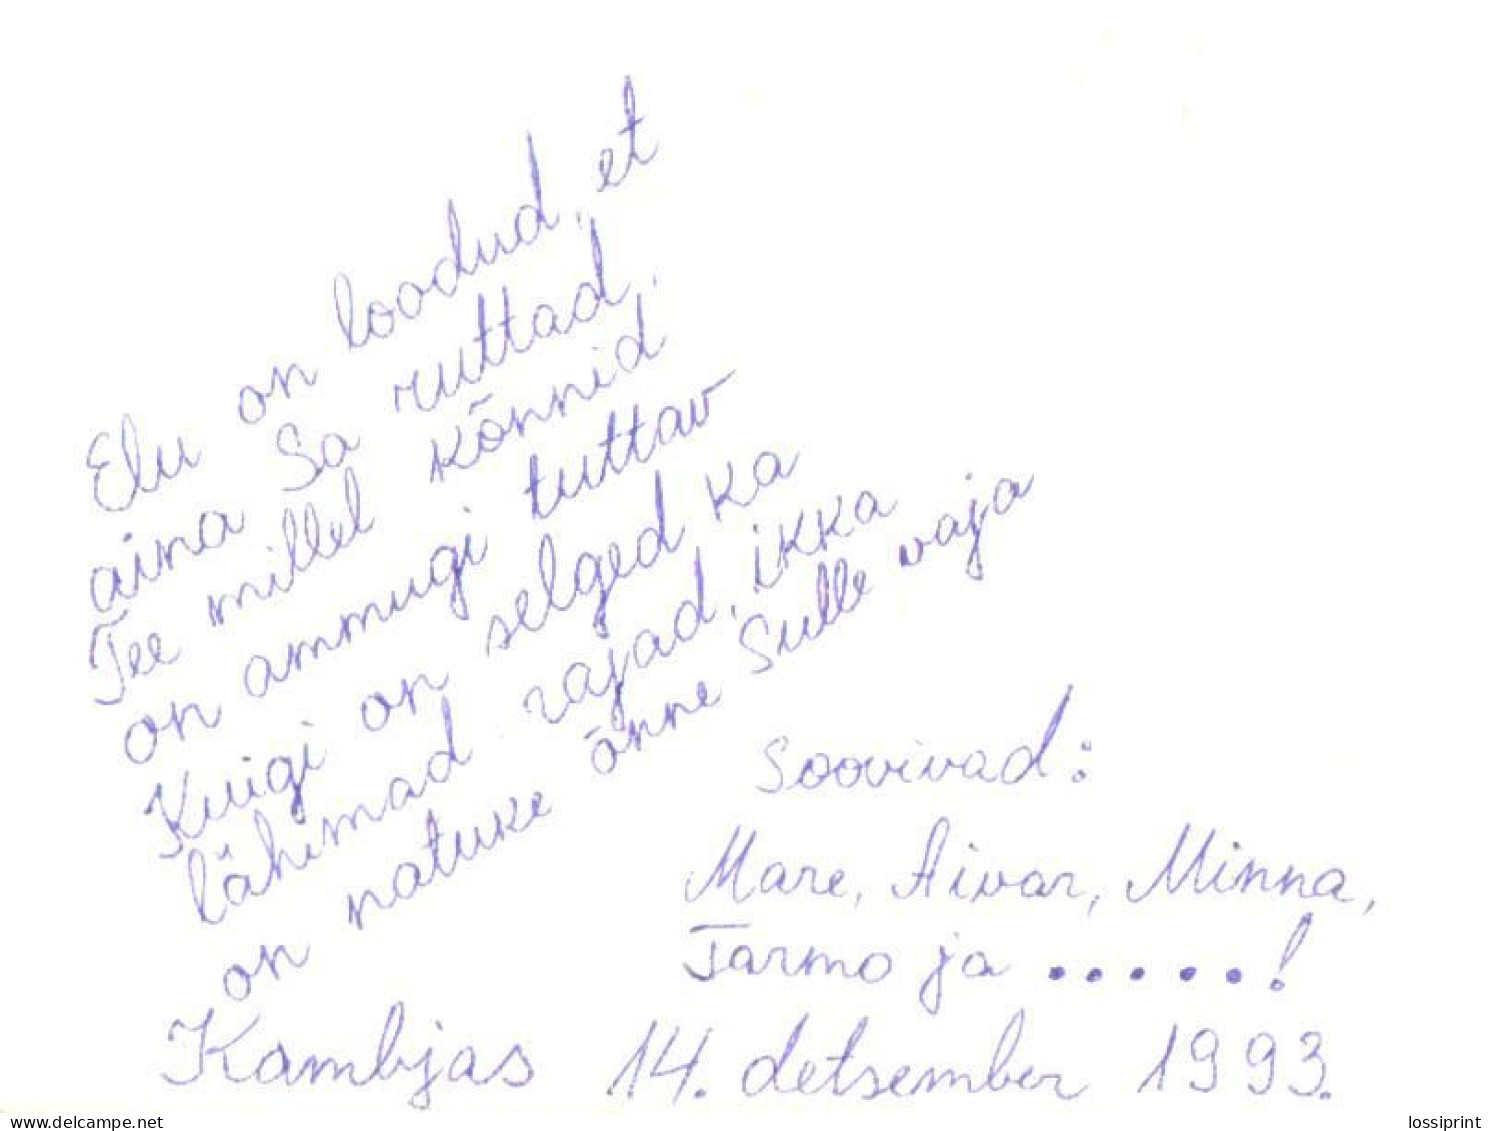 Elu on loodud, et
aina Sa ruttad.
Tee millel kõnnid
on ammugi tuttav
Kuigi on selged ka
lähimad rajad, ikka
on natuke õnne Sulle vaja
Soovivad:
Mare, Aivar, Minna,
Tarmo ja .....!
Kambjas 14. detsember 1993.
www.delcampe.net
lossiprint